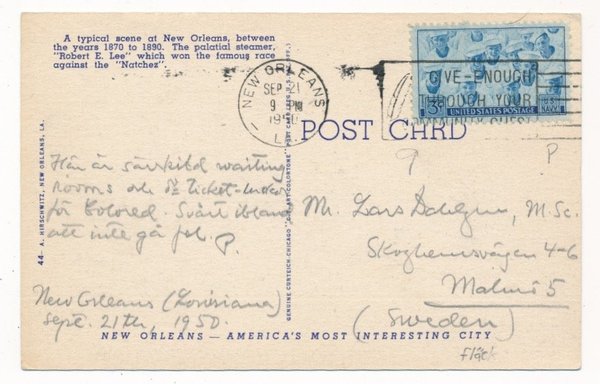 A typical scene at New Orleans, between
the years 1870 to 1890. The palatial steamer,
"Robert E. Lee" which won the famous race
against the "Natchez".
NEW ORLEANS
SEP 21
9 PM
1950
LA.
GIVE-ENOUGH
THROUGH YOUR
COMMUNITY CHEST
3¢ UNITED STATES POSTAGE U.S. NAVY
POST CARD
P
Här är särskild waiting
rooms och ticket-luckor
för Colored. Svårt ibland
att inte gå fel. P.
New Orleans (Louisiana)
Sept. 21th, 1950.
Mr. Lars Dahlgren, M.Sc.
Skoghemsvägen 4-6
Malmö 5
(Sweden)
Fläck
44 A. HIRSCHWITZ, NEW ORLEANS, LA.
GENUINE CURTEICH-CHICAGO "C.T. ART-COLORTONE" POST CARD
NEW ORLEANS — AMERICA'S MOST INTERESTING CITY